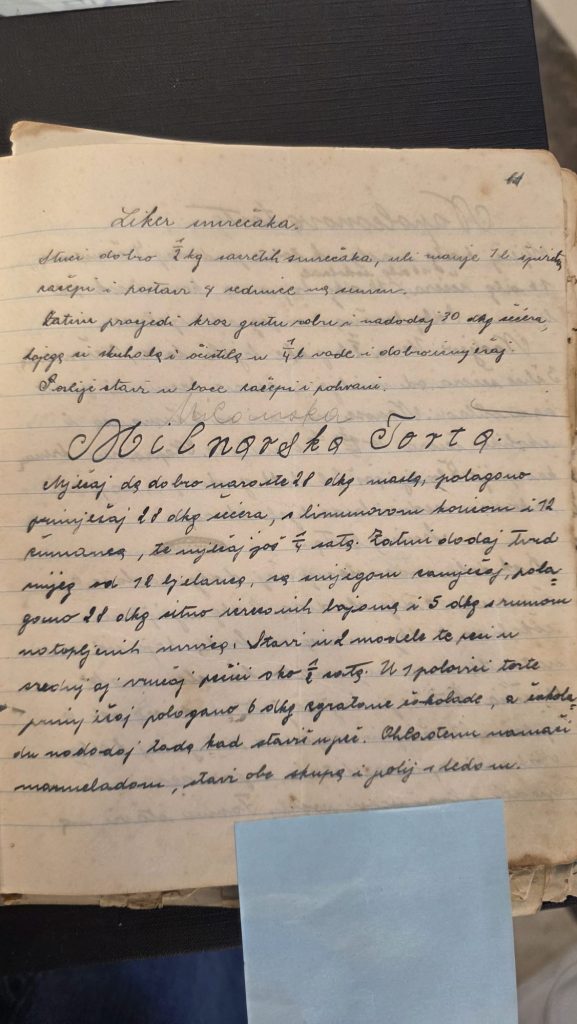 61
Liker smrečaka.
Stuci dobro 1/2 kg smrečaka, uli manje 1 li špirita
začepi i postavi 4 sedmice na suncu.
Zatim procjedi kroz gustu robu i nadodaj 30 dkg sećera,
kojega si skuhala i očistila u 1/4 l vode i dobro umješaj.
Poslije stavi u boce začepi i pohrani.
Milnarska Torta.
Mješaj da dobro naraste 28 dkg masla, polagano
primješaj 28 dkg sećera, s limunovom koricom i 12
žumanca, te mješaj još 1/4 sata. Zatim dodaj tvrd
snijeg od 12 bjelanca, sa snijegom zamješaj pola=
gano 28 dkg sitno izrezanih bajama i 5 dkg s rumom
natopljenih mrvica. Stavi u 2 modele te peci u
srednjoj vrućoj pećici oko 1/2 sata. U 1 polovici torte
primješaj polagano 6 dkg zgratane čokolade, a čokola=
du nadodaj tada kad staviš u peć. Ohlađenu namaži
marmeladom, stavi obe skupa i polij s ledom.